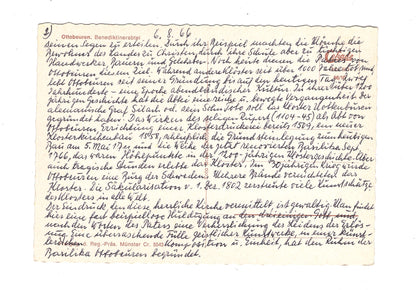 2) Ottobeuren. Benediktinerabtei 6. 8. 66
seinen Segen zu erteilen. Durch ihr Beispiel machten die Mönche die
Bewohner des Landes zu Christen, durch ihre Schule aber zu tüchtigen
Handwerker, Bauern und Gelehrten. Noch heute dienen die Patres von
Ottobeuren diesem Ziel. Während andere Klöster seit über
lebt Ottobeuren seit seiner Gründung bis auf den heutigen Tag
Jahrhunderte – eine Epoche abendländischer Kultur. In ihrer 1200
jährigen Geschichte hat die Abtei eine reiche u. bewegte Vergangenheit. Der
alemannische Graf Silach soll dem Sohn Toto das Kloster Ottobeuren
gegründet haben. Das Wirken des seligen Rupert (1104-45) als Abt von
Ottobeuren, Errichtung einer Klosterdruckerei bereits 1509, einer
Klosterakademie 1543, schließlich die Grundsteinlegung zum heutigen
Bau am 5. Mai 1711 und die Weihe der jetzt renovierten Basilika Sept.
1766, das waren Höhepunkte in der 1200-jährigen Klostergeschichte. Aber
auch tragische Stunden erlebte das Kloster. Im 30jährigen Krieg wurde
Ottobeuren eine Burg der Schweden. Mehrere Brände vernichteten das
Kloster. Die Säkularisation v. 1. Dez. 1802 zerstreute viele Kunstschätze
des Klosters in alle Welt.
Der Eindruck, den diese herrliche Kirche vermittelt, ist gewaltig. Man findet
hier eine fast beispiellose Huldigung an den dreieinigen Gott, und
nach den Worten des Paters eine Verherrlichung des Heidens der Erlö-
sung. Eine überraschende Fülle geistlicher Kunstwerke, in einer künst-
lerischen Reg.-Präs. Münster Cr. Komposition u. Einheit, hat den Ruhm der
Basilika Ottobeuren begründet.